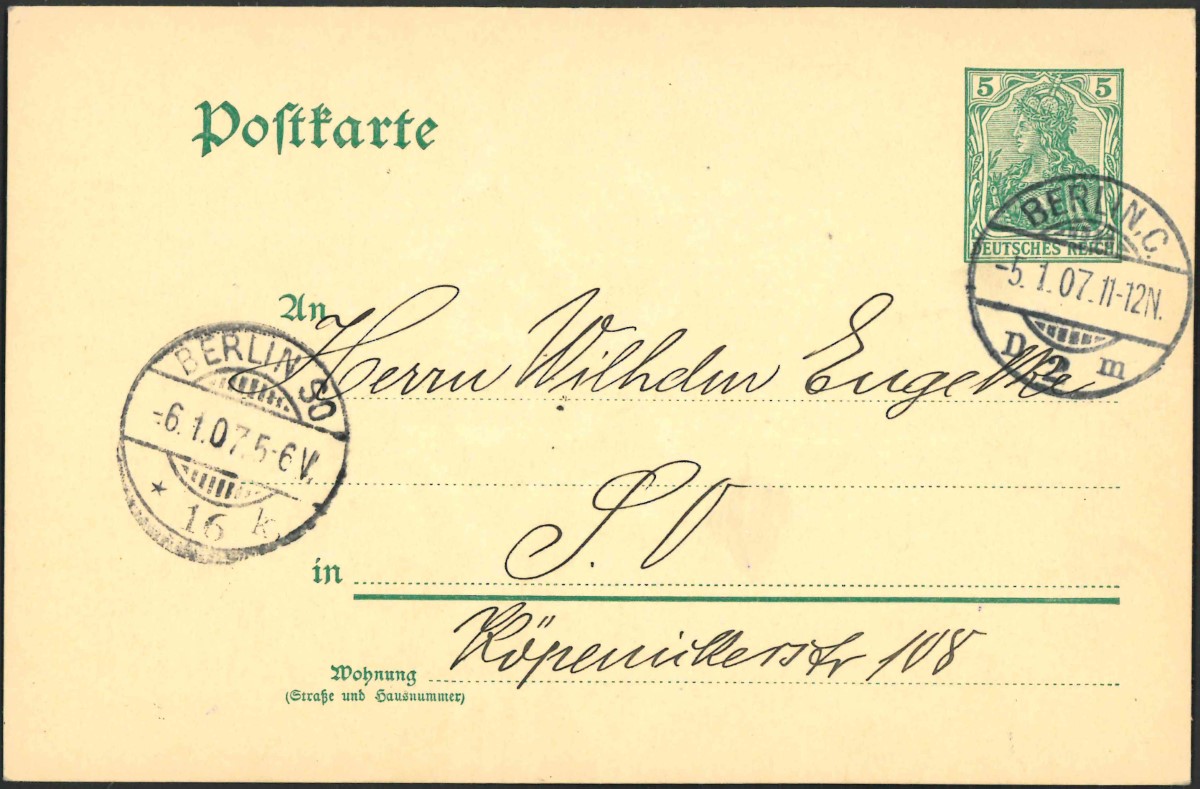 Postkarte
5 5
DEUTSCHES REICH
BERLIN.C.
-5.1.07.11-12N.
2 m
An Herrn Wilhelm Engelke
BERLIN SO
-6.1.07.5-6V.
* 16 k.
S.O
in
Köpenickerstr 108
Wohnung
(Straße und Hausnummer)